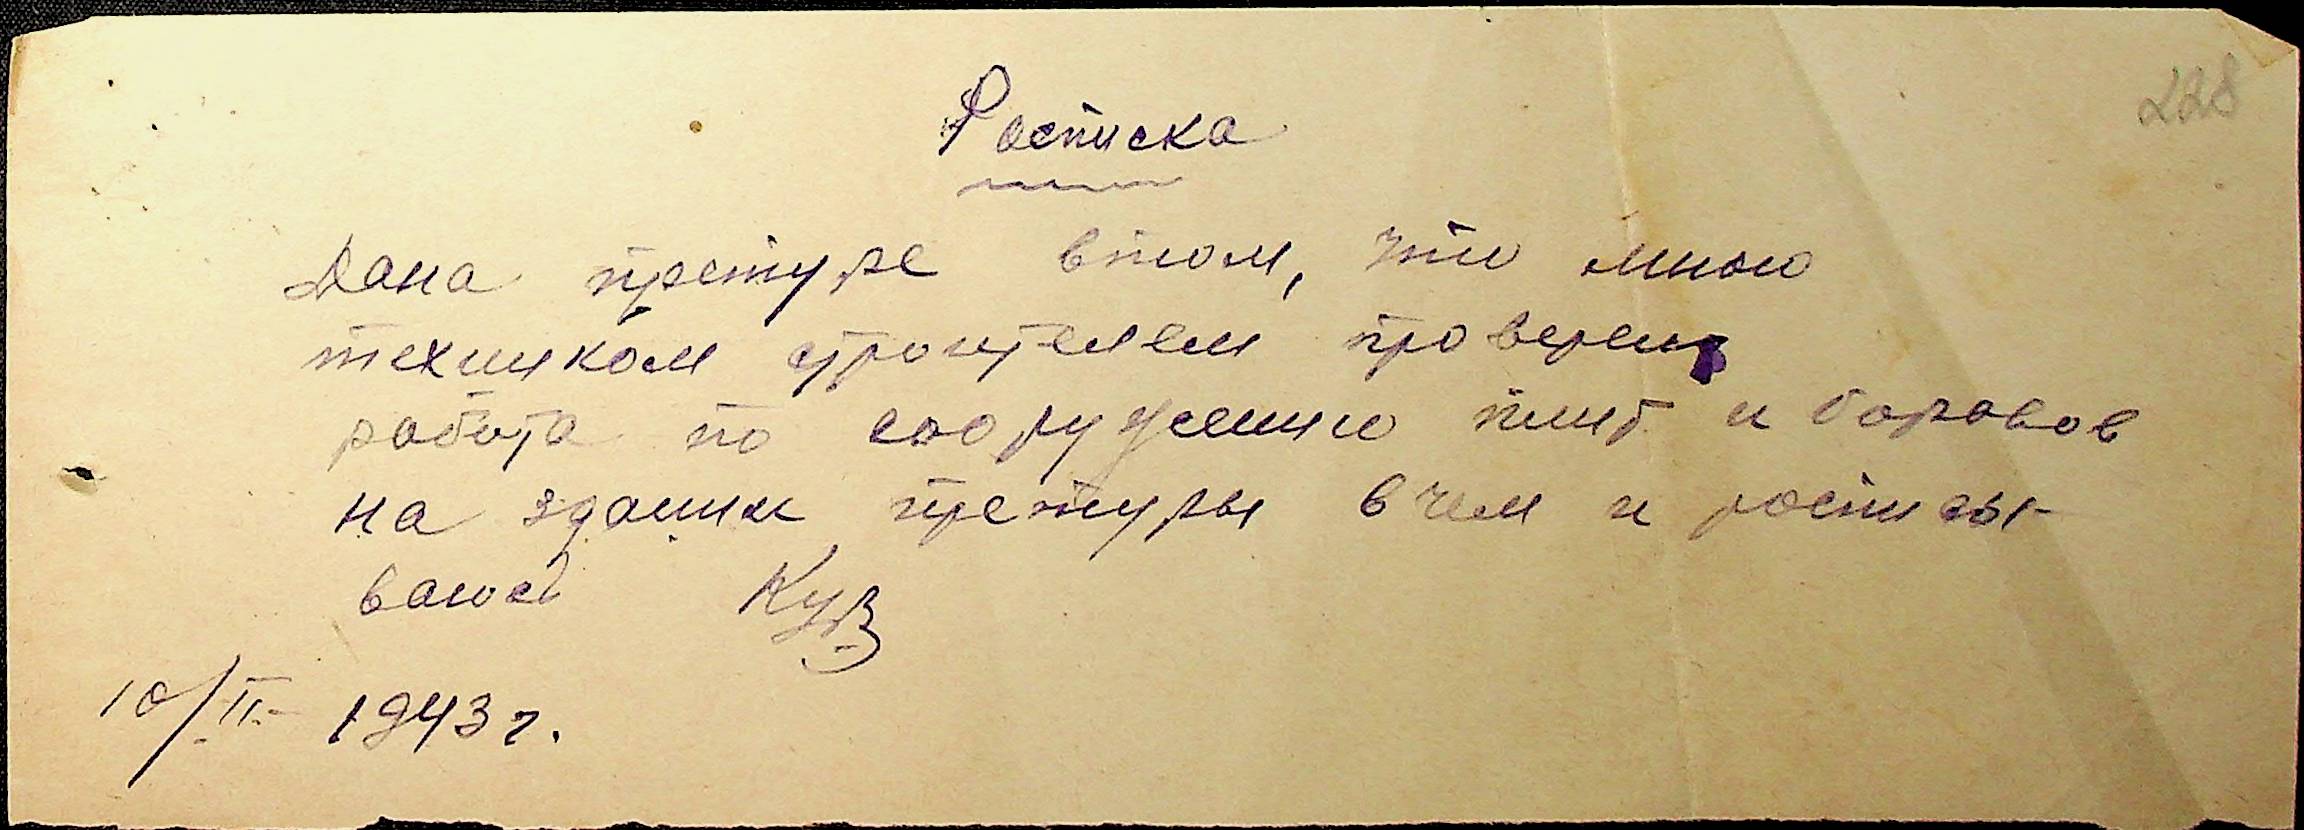 228
Росписка
Дана претуре втом, что мною
техником строителем проверен
работа по сооружению плит и боровов
на здании претуры в чем и росписы-
ваюсь Куз
10/II- 1943 г.